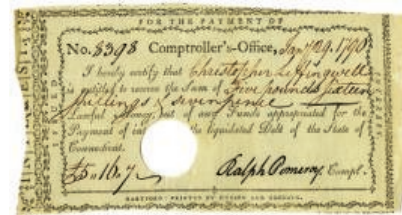 FOR THE PAYMENT OF
No. 8398 Comptroller's-Office, Jany 29. 1790
I hereby certify that Christopher Leffingwell
is entitled to receive the Sum of Five pounds sixteen
shillings & seven pence
Lawful Money, out of any Funds appropriated for the
Payment of the liquidated Debt of the State of
Connecticut.
£5 " 16. 7
Ralph Pomeroy Compt.
HARTFORD: PRINTED BY HUDSON AND GOODWIN.
ISSUED